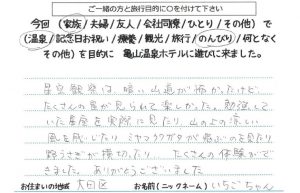 ご一緒の方と旅行目的に○を付けて下さい
今回（家族／夫婦／友人／会社同僚／ひとり／その他）で
（温泉／記念日お祝い／療養／観光／旅行／のんびり／何となく
その他）を目的に 亀山温泉ホテルに遊びに来ました。
星空観察は、暗い山道が怖かったけど
たくさんの星が見られて楽しかった。勉強して
いた星座を実際に見たり、山の上の涼しい
風を感じたり ミヤマクワガタが飛ぶのを見たり
野うさぎが横切ったり、たくさんの体験がで
きました。ありがとうございました
お住まいの地域 大田区 お名前(ニックネーム) いちごちゃん